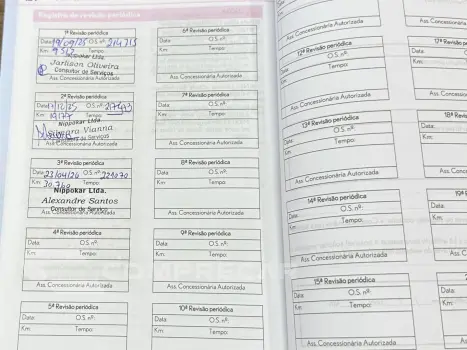 Registro de revisão periódica
1ª Revisão periódica
Data: 19/09/25 O.S. nº: 214215
Km: 9512 Tempo:
Nippokar Ltda.
Jarlison Oliveira
Consultor de Serviços
Ass. Concessionária Autorizada
2ª Revisão periódica
Data: /12/25 O.S. nº: 217593
Km: 19177 Tempo:
Nippokar Ltda.
Vianna
de Serviços
Ass. Concessionária Autorizada
3ª Revisão periódica
Data: 23/04/26 O.S. nº: 221070
Km: 30.760
Nippokar Ltda.
Alexandre Santos
Consultor de Serviço
Ass. Concessionária Autorizada
4ª Revisão periódica
Data: O.S. nº:
Km: Tempo:
Ass. Concessionária Autorizada
5ª Revisão periódica
Data: O.S. nº:
Km: Tempo:
6ª Revisão periódica
Data: O.S. nº:
Km: Tempo:
Ass. Concessionária Autorizada
7ª Revisão periódica
Data: O.S. nº:
Km: Tempo:
Ass. Concessionária Autorizada
8ª Revisão periódica
Data: O.S. nº:
Km: Tempo:
Ass. Concessionária Autorizada
9ª Revisão periódica
Data: O.S. nº:
Km: Tempo:
Ass. Concessionária Autorizada
10ª Revisão periódica
Data: O.S. nº:
Km: Tempo:
Km: Tempo:
Ass. Concessionária Autorizada
12ª Revisão periódica
Data: O.S. nº:
Km: Tempo:
Ass. Concessionária Autorizada
13ª Revisão periódica
Data: O.S. nº:
Km: Tempo:
Ass. Concessionária Autorizada
14ª Revisão periódica
Data: O.S. nº:
Km: Tempo:
Ass. Concessionária Autorizada
15ª Revisão periódica
Data: O.S. nº:
Km: Tempo:
Ass. Concessionária Autorizada
Km:
Ass. Concessionária
17ª Revisão
Data:
Km:
Ass. Concessionária
18ª Revi
Data:
Km:
Ass. Concession
19ª
Data:
Km:
Ass. Conces
Data:
Km:
Ass.